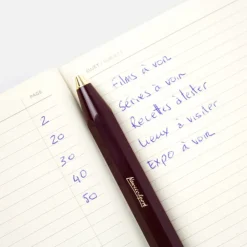 PAGE
2
20
30
40
50
Films à voir
Séries à voir
Recettes à tester
Lieux à visiter
Expo à voir
Kaweco Sport